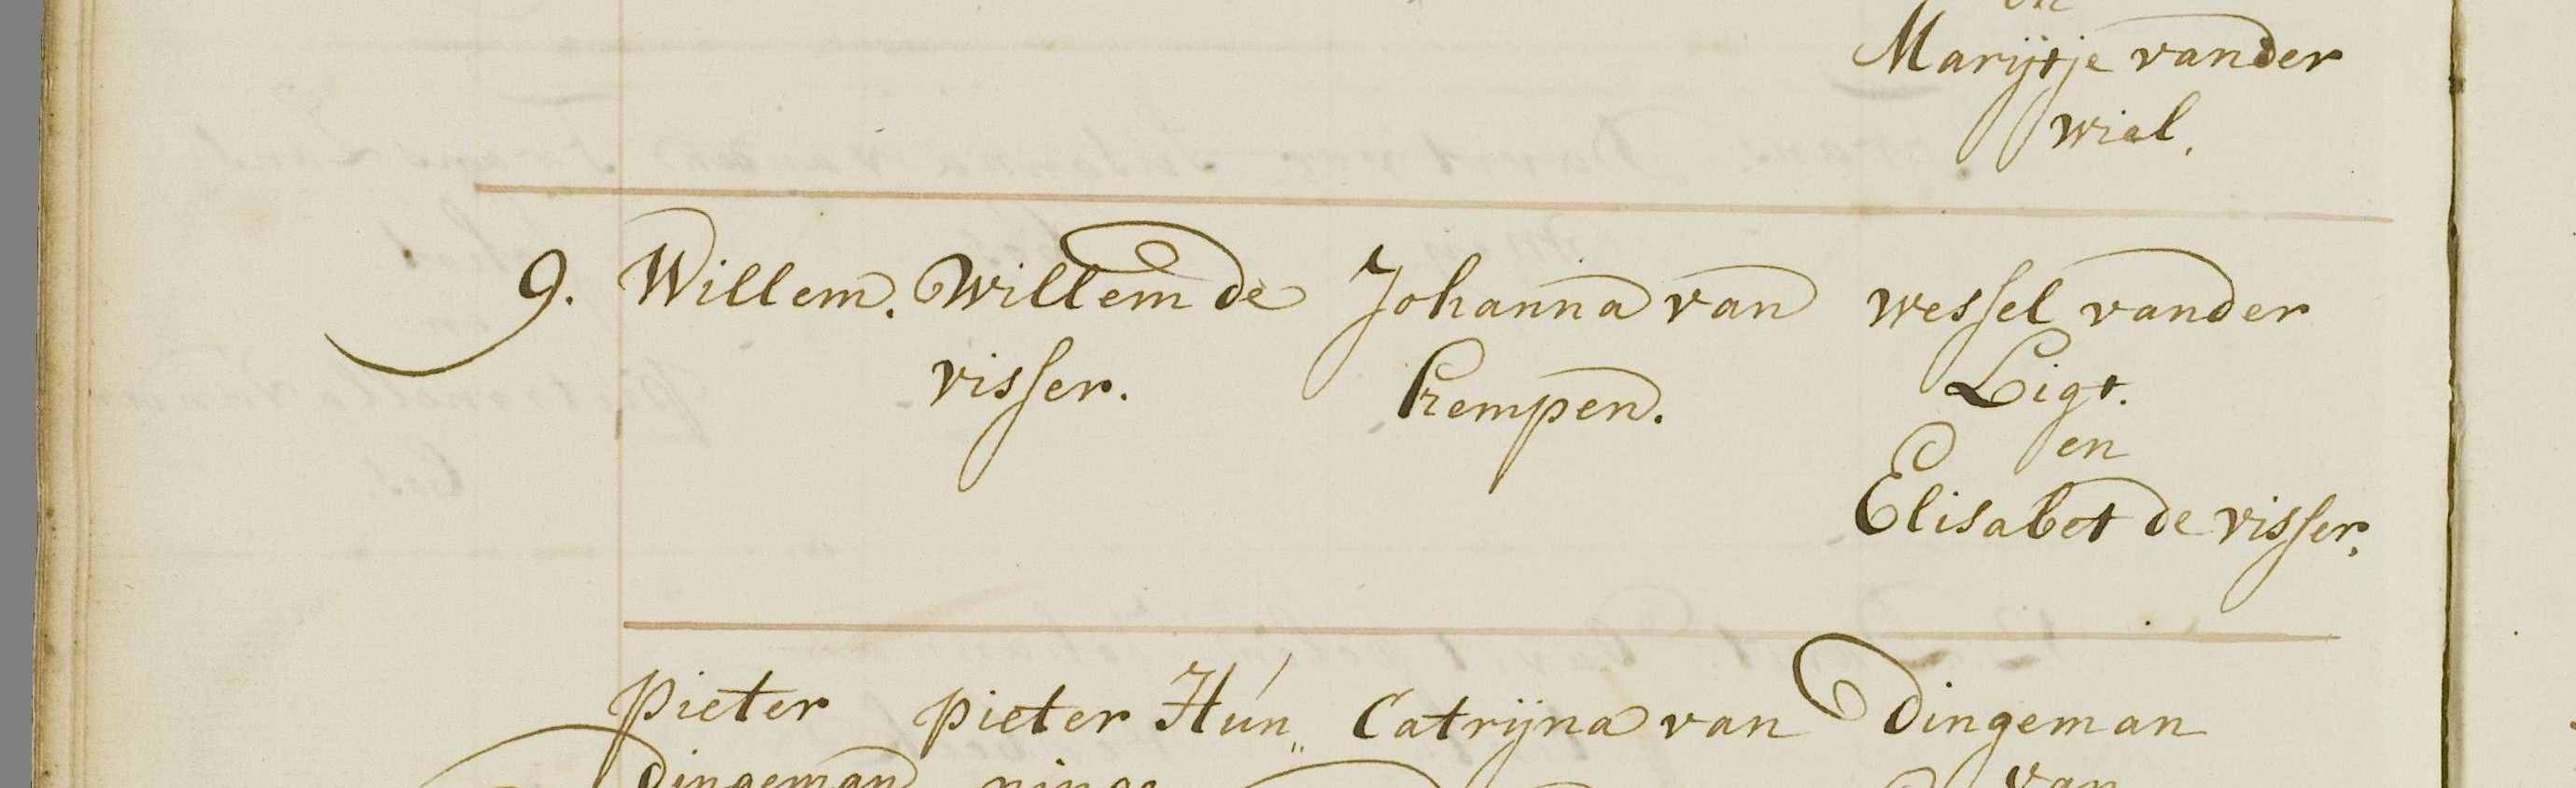 Marijtje vander
wiel.
9. Willem. Willem de Johanna van wessel vander
visser. Kempen. Ligt.
en
Elisabet de visser.
Pieter pieter Hún„ Catrijna van Dingeman
Dingeman ninge van